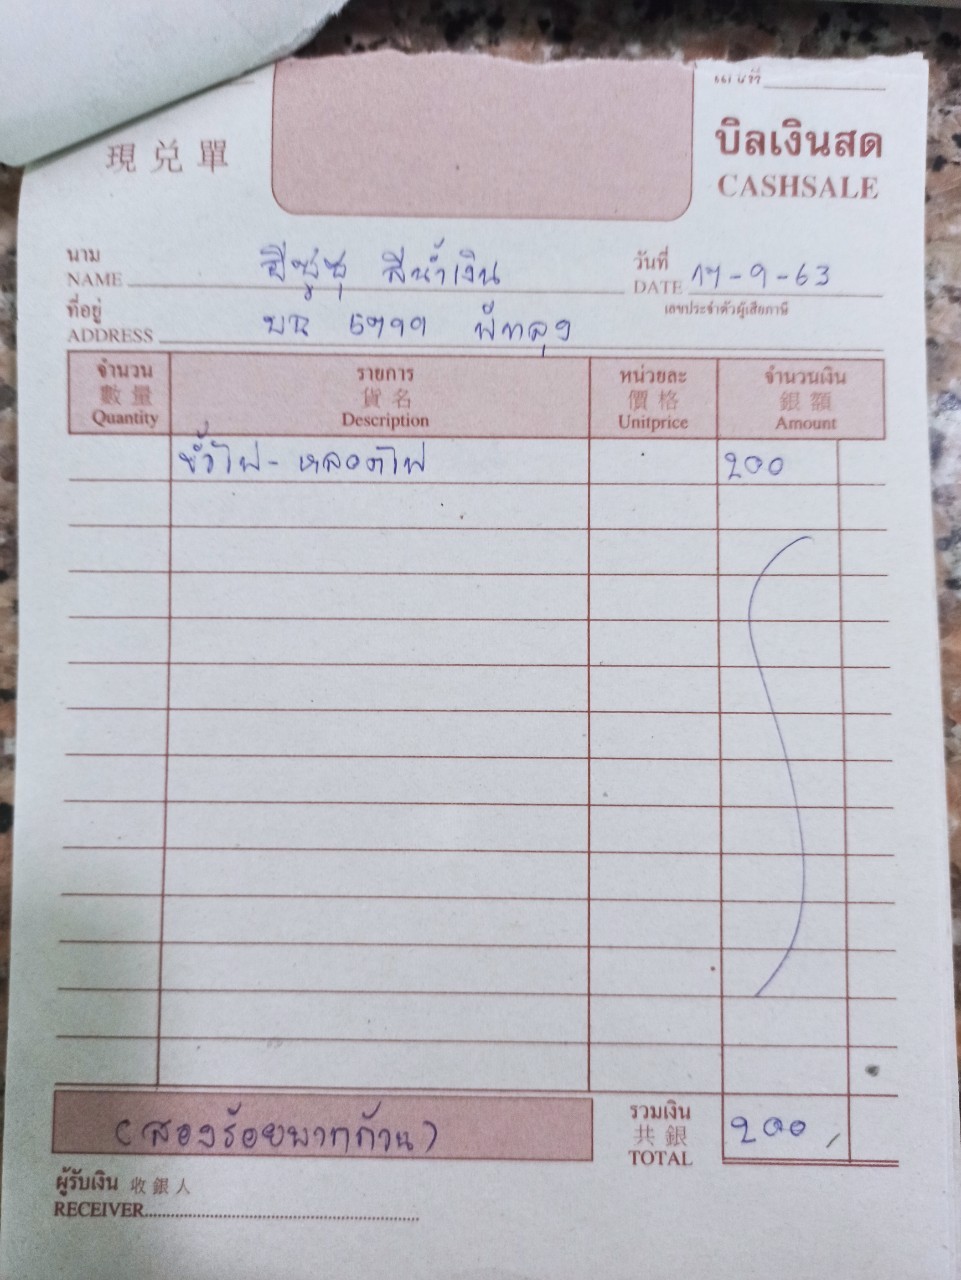 現兑單
บิลเงินสด
CASHSALE
นาม
NAME อีซูซุ สีน้ำเงิน
วันที่
DATE 17-9-63
เลขประจำตัวผู้เสียภาษี
ที่อยู่
ADDRESS บท พัทลุง
จำนวน รายการ หน่วยละ จำนวนเงิน
數量 貨名 價格 銀額
Quantity Description Unitprice Amount
ขั้วไฟ - หลอดไฟ 200
(สองร้อยบาทถ้วน)
รวมเงิน
共銀
TOTAL 200
ผู้รับเงิน 收銀人
RECEIVER